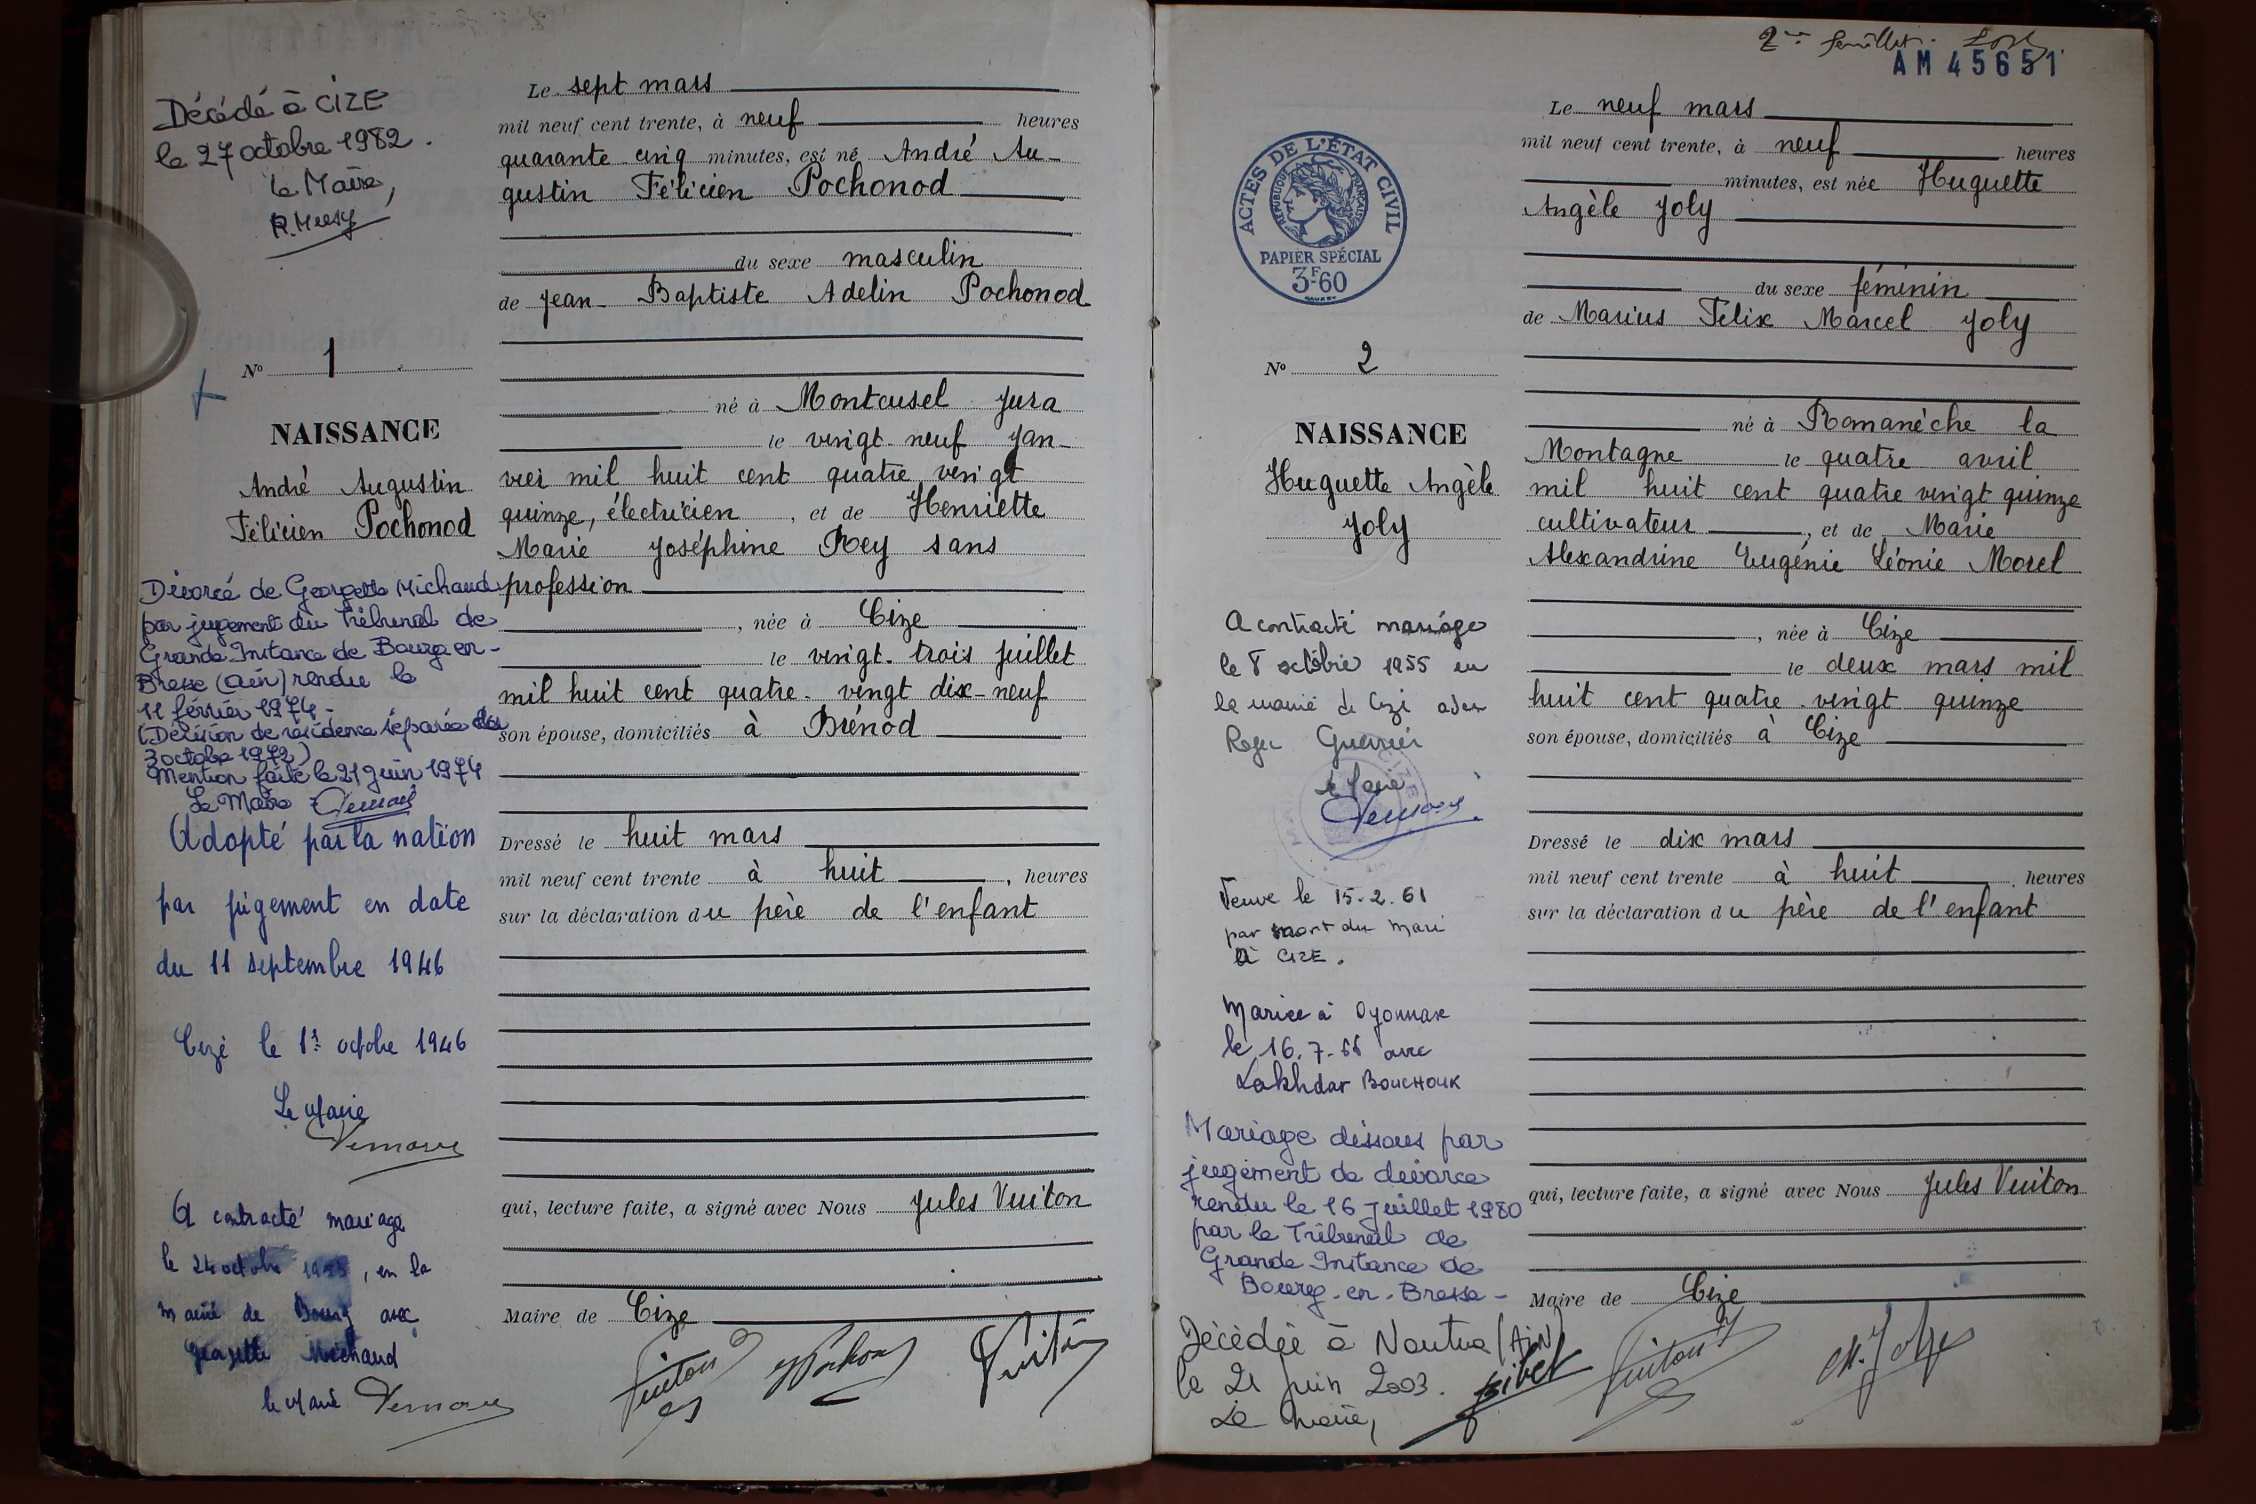 Décédé à CIZE
le 27 octobre 1982.
le Maire,
Nº 1
NAISSANCE
André Augustin
Félicien Pochonod
Divorcé de Georgette Michaud
par jugement du Tribunal de
Grande Instance de Bourg en-
Bresse (Ain) rendu le
11 février 1974-
(Décision de résidence séparée du
3 octobre 1972)
Mention faite le 21 juin 1974
Le Maire
Adopté par la nation
par jugement en date
du 11 septembre 1946
Cize le 1er octobre 1946
Le Maire
A contracté mariage
le 24 octobre, en la
mairie de Bourg avec
Georgette Michaud
le Maire
Le sept mars
mil neuf cent trente, à neuf heures
quarante cinq minutes, est né André Au-
gustin Félicien Pochonod
du sexe masculin
de Jean-Baptiste Adelin Pochonod
né à Montcusel Jura
le vingt-neuf Jan-
vier mil huit cent quatre vingt
quinze, électricien, et de Henriette
Marie Joséphine Rey sans
profession
, née à Cize
le vingt-trois juillet
mil huit cent quatre-vingt dix-neuf
son épouse, domiciliés à Brénod
Dressé le huit mars
mil neuf cent trente à huit, heures
sur la déclaration du père de l'enfant
qui, lecture faite, a signé avec Nous Jules Vuiton
Maire de Cize
2me feuillet.
AM 45651
ACTES DE L'ÉTAT CIVIL
RÉPUBLIQUE FRANÇAISE
PAPIER SPÉCIAL
3F60
Nº 2
NAISSANCE
Huguette Angèle
Joly
A contracté mariage
le 8 octobre 1955 en
la mairie de Cize avec
Roger Guerrier
le Maire
Veuve le 15.2.61
par mort du mari
à CIZE.
Mariée à Oyonnax
le 16.7.66 avec
Lakhdar BOUCHOUK
Mariage dissous par
jugement de divorce
rendu le 16 Juillet 1980
par le Tribunal de
Grande Instance de
Bourg-en-Bresse-
Décédée à Nantua (AIN)
le 21 Juin 2003.
Le Maire,
Le neuf mars
mil neuf cent trente, à neuf heures
minutes, est née Huguette
Angèle Joly
du sexe féminin
de Marius Félix Marcel Joly
né à Romanèche la
Montagne le quatre avril
mil huit cent quatre vingt quinze
cultivateur, et de Marie
Alexandrine Eugénie Léonie Morel
, née à Cize
le deux mars mil
huit cent quatre-vingt quinze
son épouse, domiciliés à Cize
Dressé le dix mars
mil neuf cent trente à huit heures
sur la déclaration du père de l'enfant
qui, lecture faite, a signé avec Nous Jules Vuiton
Maire de Cize